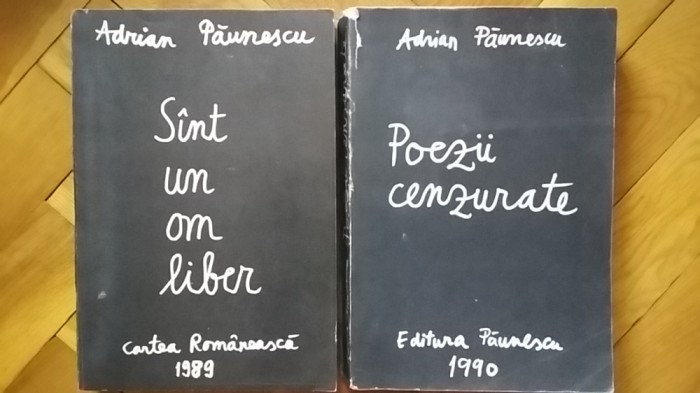 Adrian Păunescu
Sînt
un
om
liber
Cartea Românească
1989
Adrian Păunescu
Poezii
cenzurate
Editura Păunescu
1990